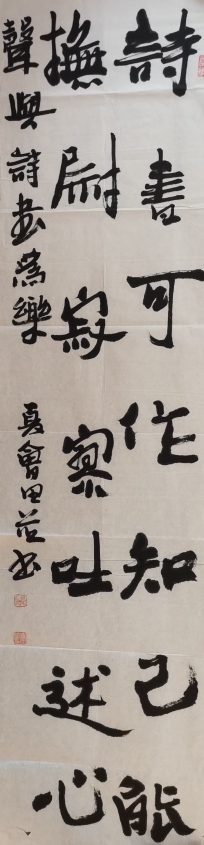 詩書可作知己能
撫慰寂寥吐述心
聲與詩書为樂
夏會田於书